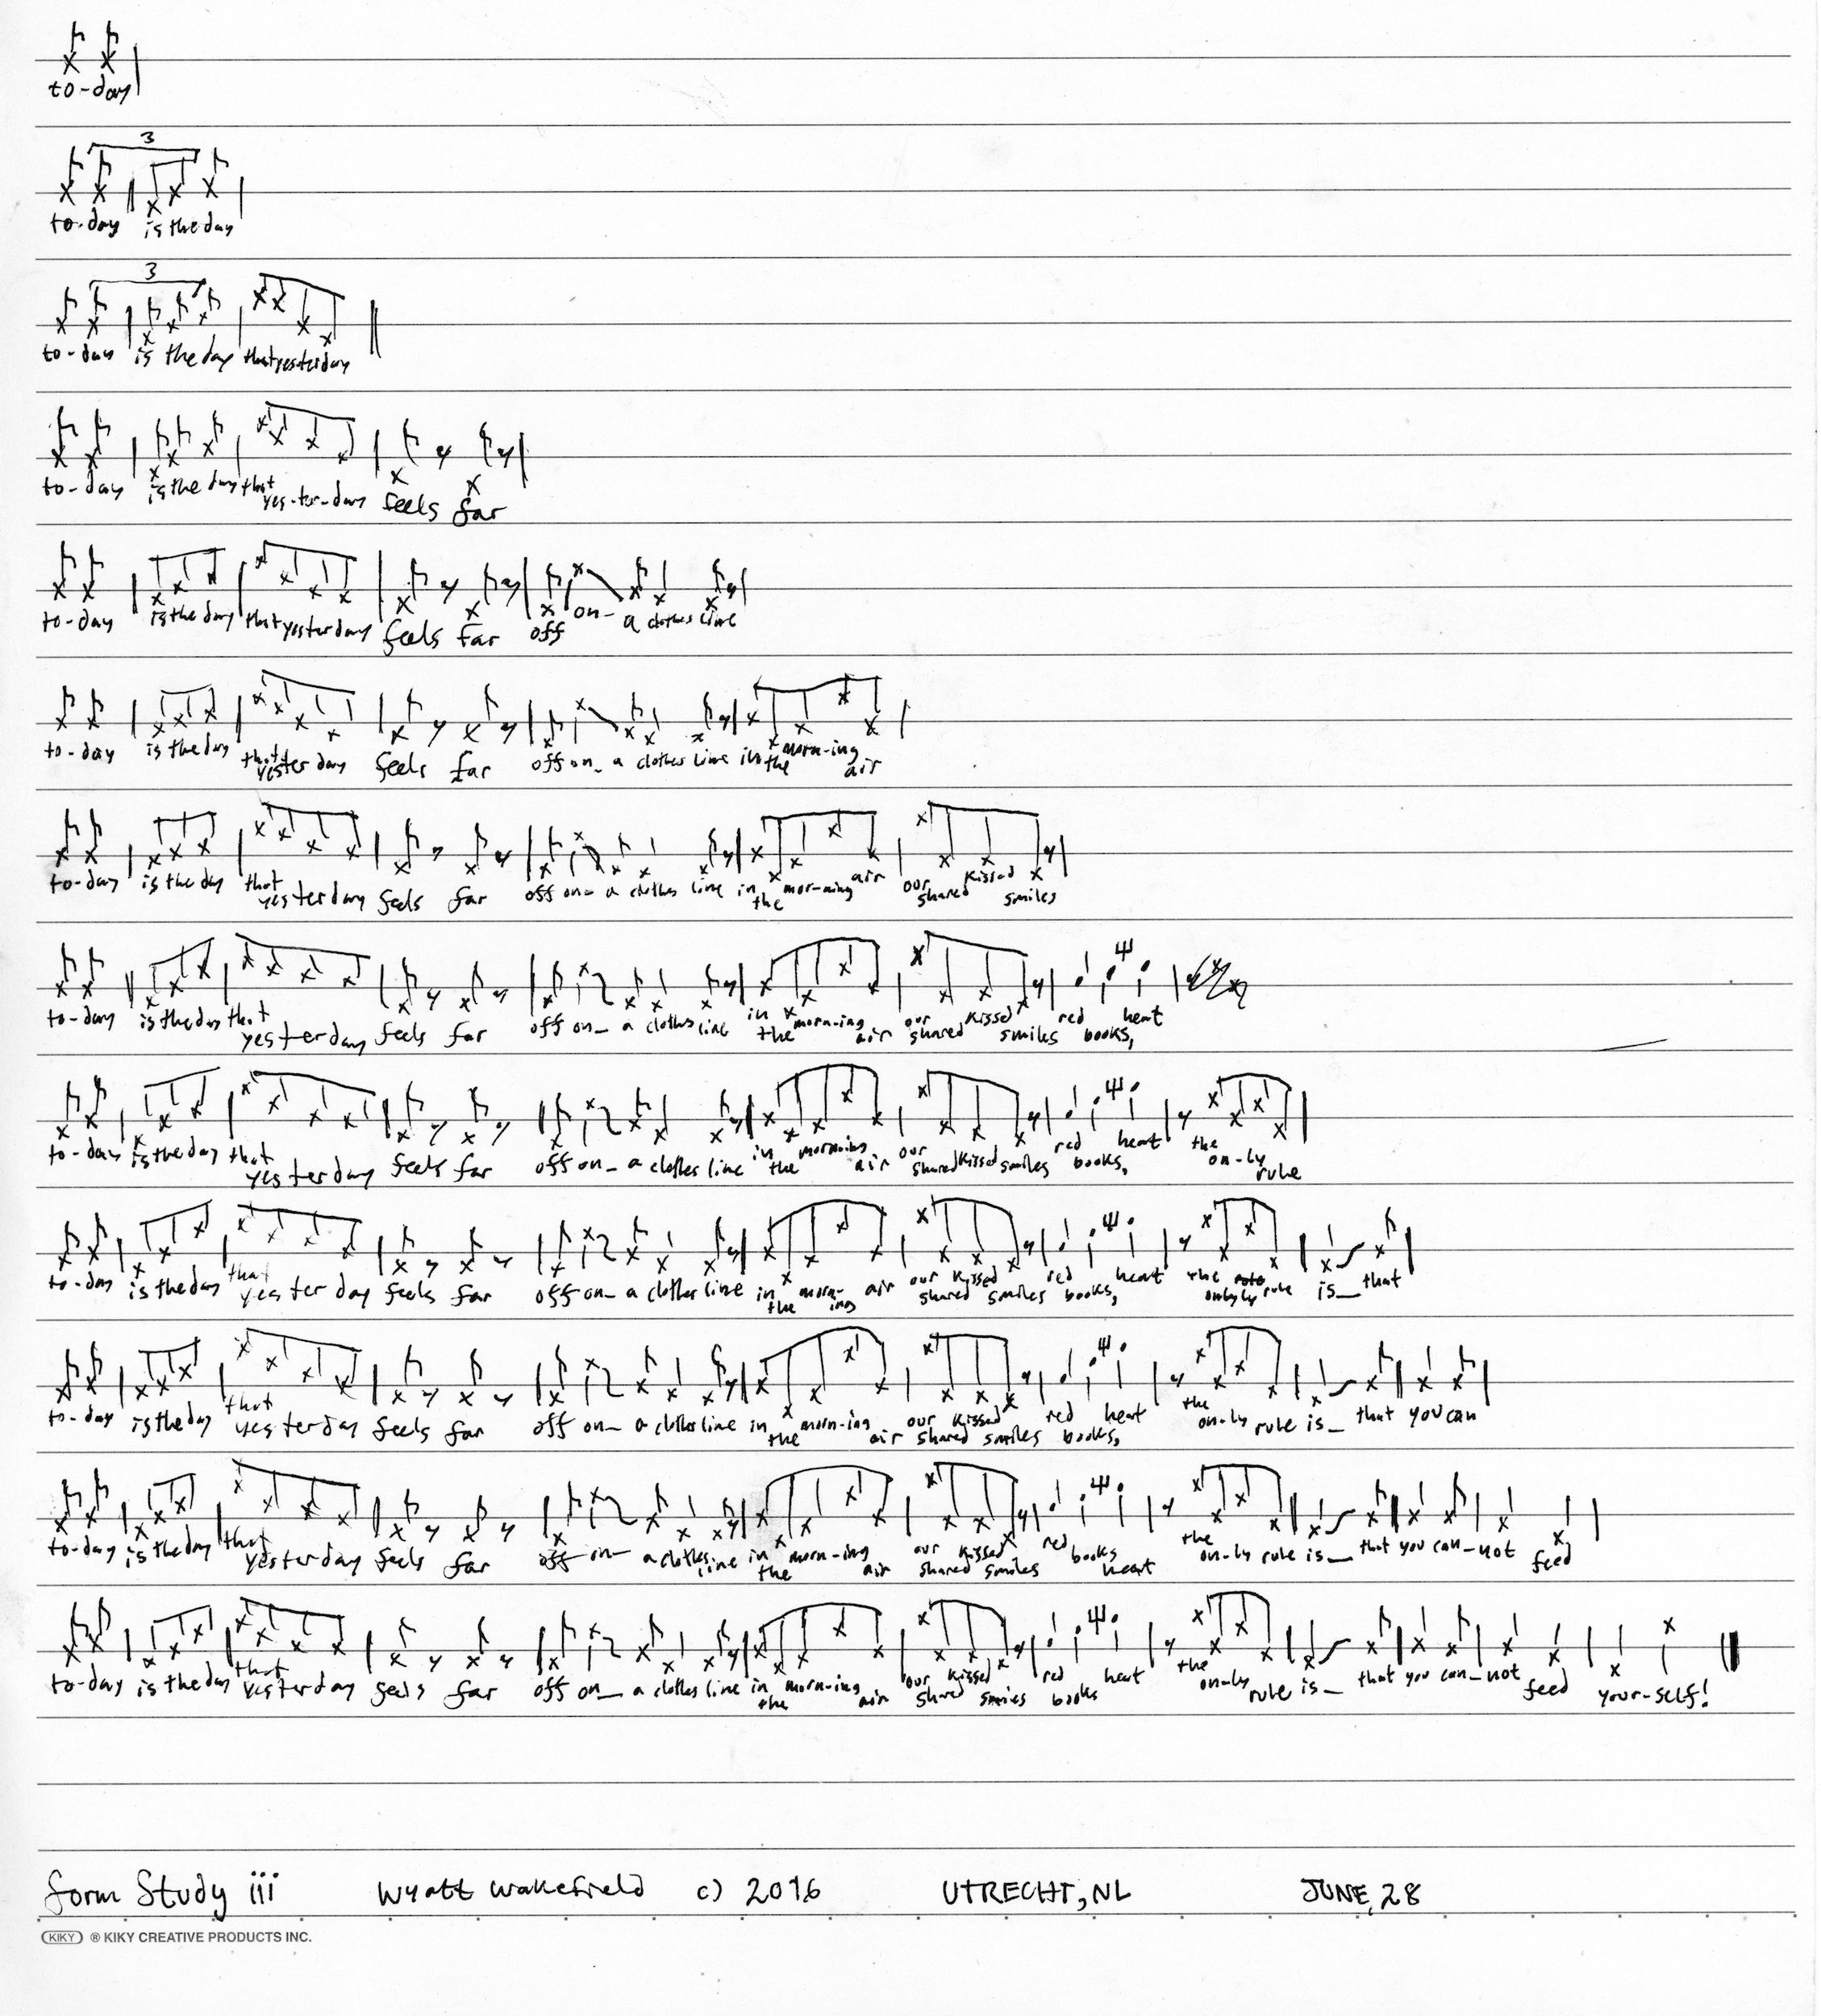 to-day
3
to-day is the day
3
to-day is the day that yesterday
to-day is the day that yes-ter-day feels far
to-day is the day that yesterday feels far off on- a clothes line
to-day is the day that yesterday feels far off on_ a clothes line in the morn-ing air
to-day is the day that yesterday feels far off on_ a clothes line in the mor-ning air our shared kissed smiles
to-day is the day that yesterday feels far off on_ a clothes line in the morn-ing air our shared kissed smiles red books, heat
to-day is the day that yesterday feels far off on_ a clothes line in the morning air our shared kissed smiles red books, heat the on-ly rule
to-day is the day that yesterday feels far off on_ a clothes line in the morn-ing air our shared kissed smiles red books, heat the only rule is_ that
to-day is the day that yesterday feels far off on_ a clothes line in the morn-ing air our shared kissed smiles red books, heat the on-ly rule is_ that you can
to-day is the day that yesterday feels far off on_ a clothes line in the morn-ing air our shared kissed smiles red books heat the on-ly rule is_ that you can_not feed
to-day is the day that yesterday feels far off on_ a clothes line in the morn-ing air our shared kissed smiles red books heat the on-ly rule is_ that you can_not feed your-self!
form Study iii Wyatt Wakefield c) 2016 UTRECHT, NL JUNE, 28
KIKY ® KIKY CREATIVE PRODUCTS INC.